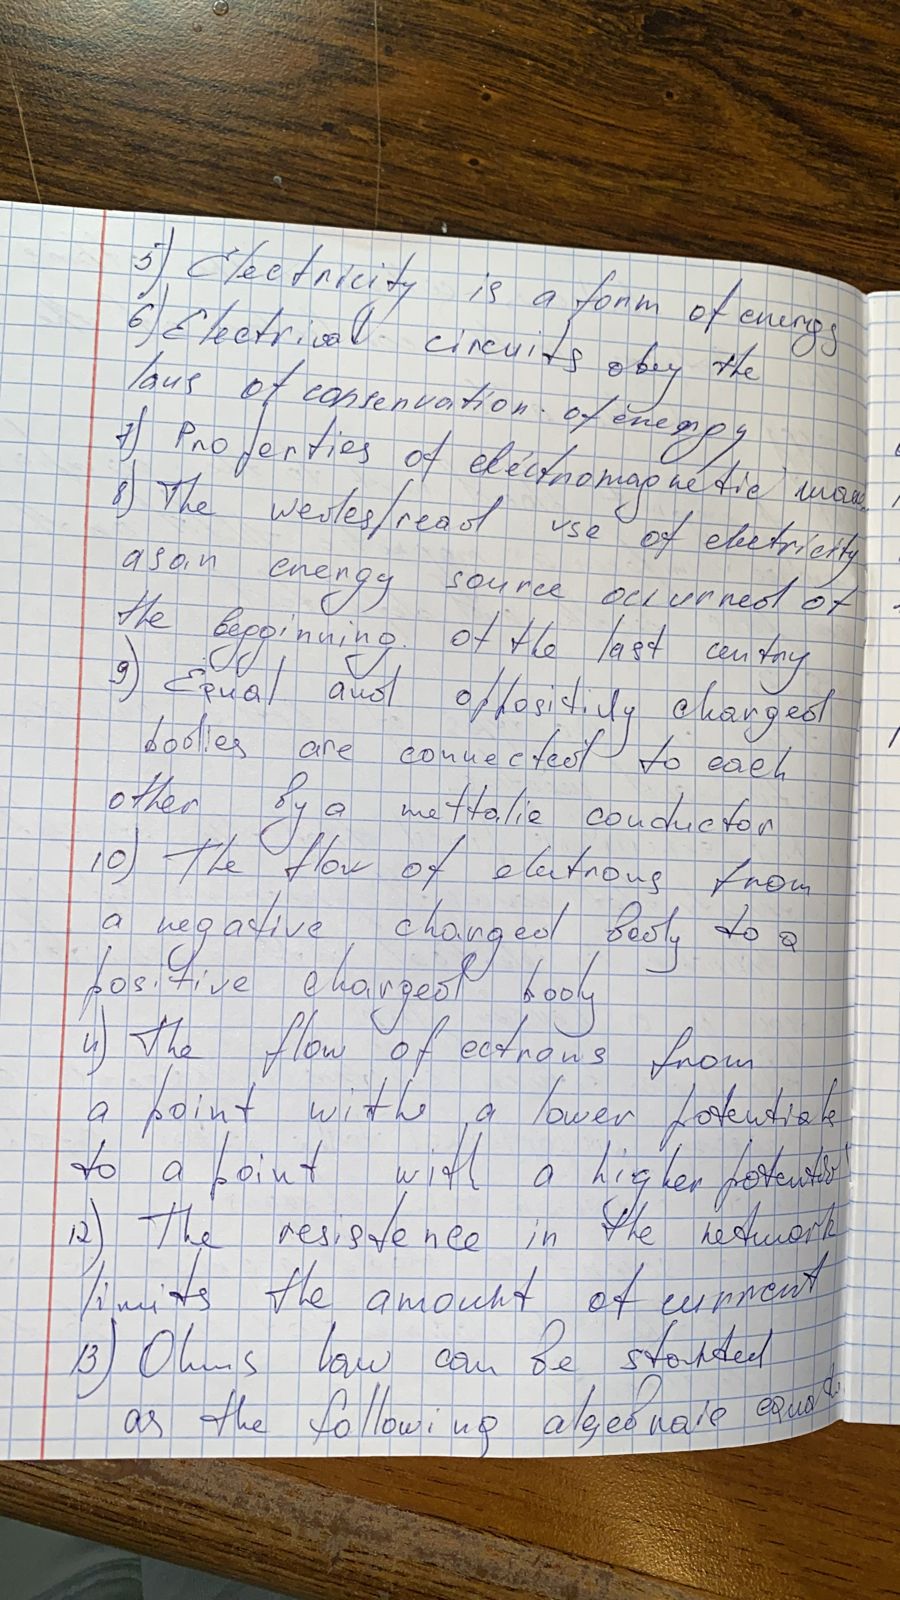 5) Electricity is a form of energy
6) Electrical circuits obey the
laws of conservation of energy
7) Properties of electromagnetic
8) The use of electricity
as an energy source occurred of
the begginning of the last centry
9) Equal and oppositidy charged
bodies are connected to each
other by a mettalic conductor
10) The flow of elektrons from
a negative charged body to a
positive charged body
11) The flow of ectrons from
a point withe a lower
to a point with a higher potential
12) The resistence in the network
limits the amount of current
13) Ohms law can be
as the following algebraic